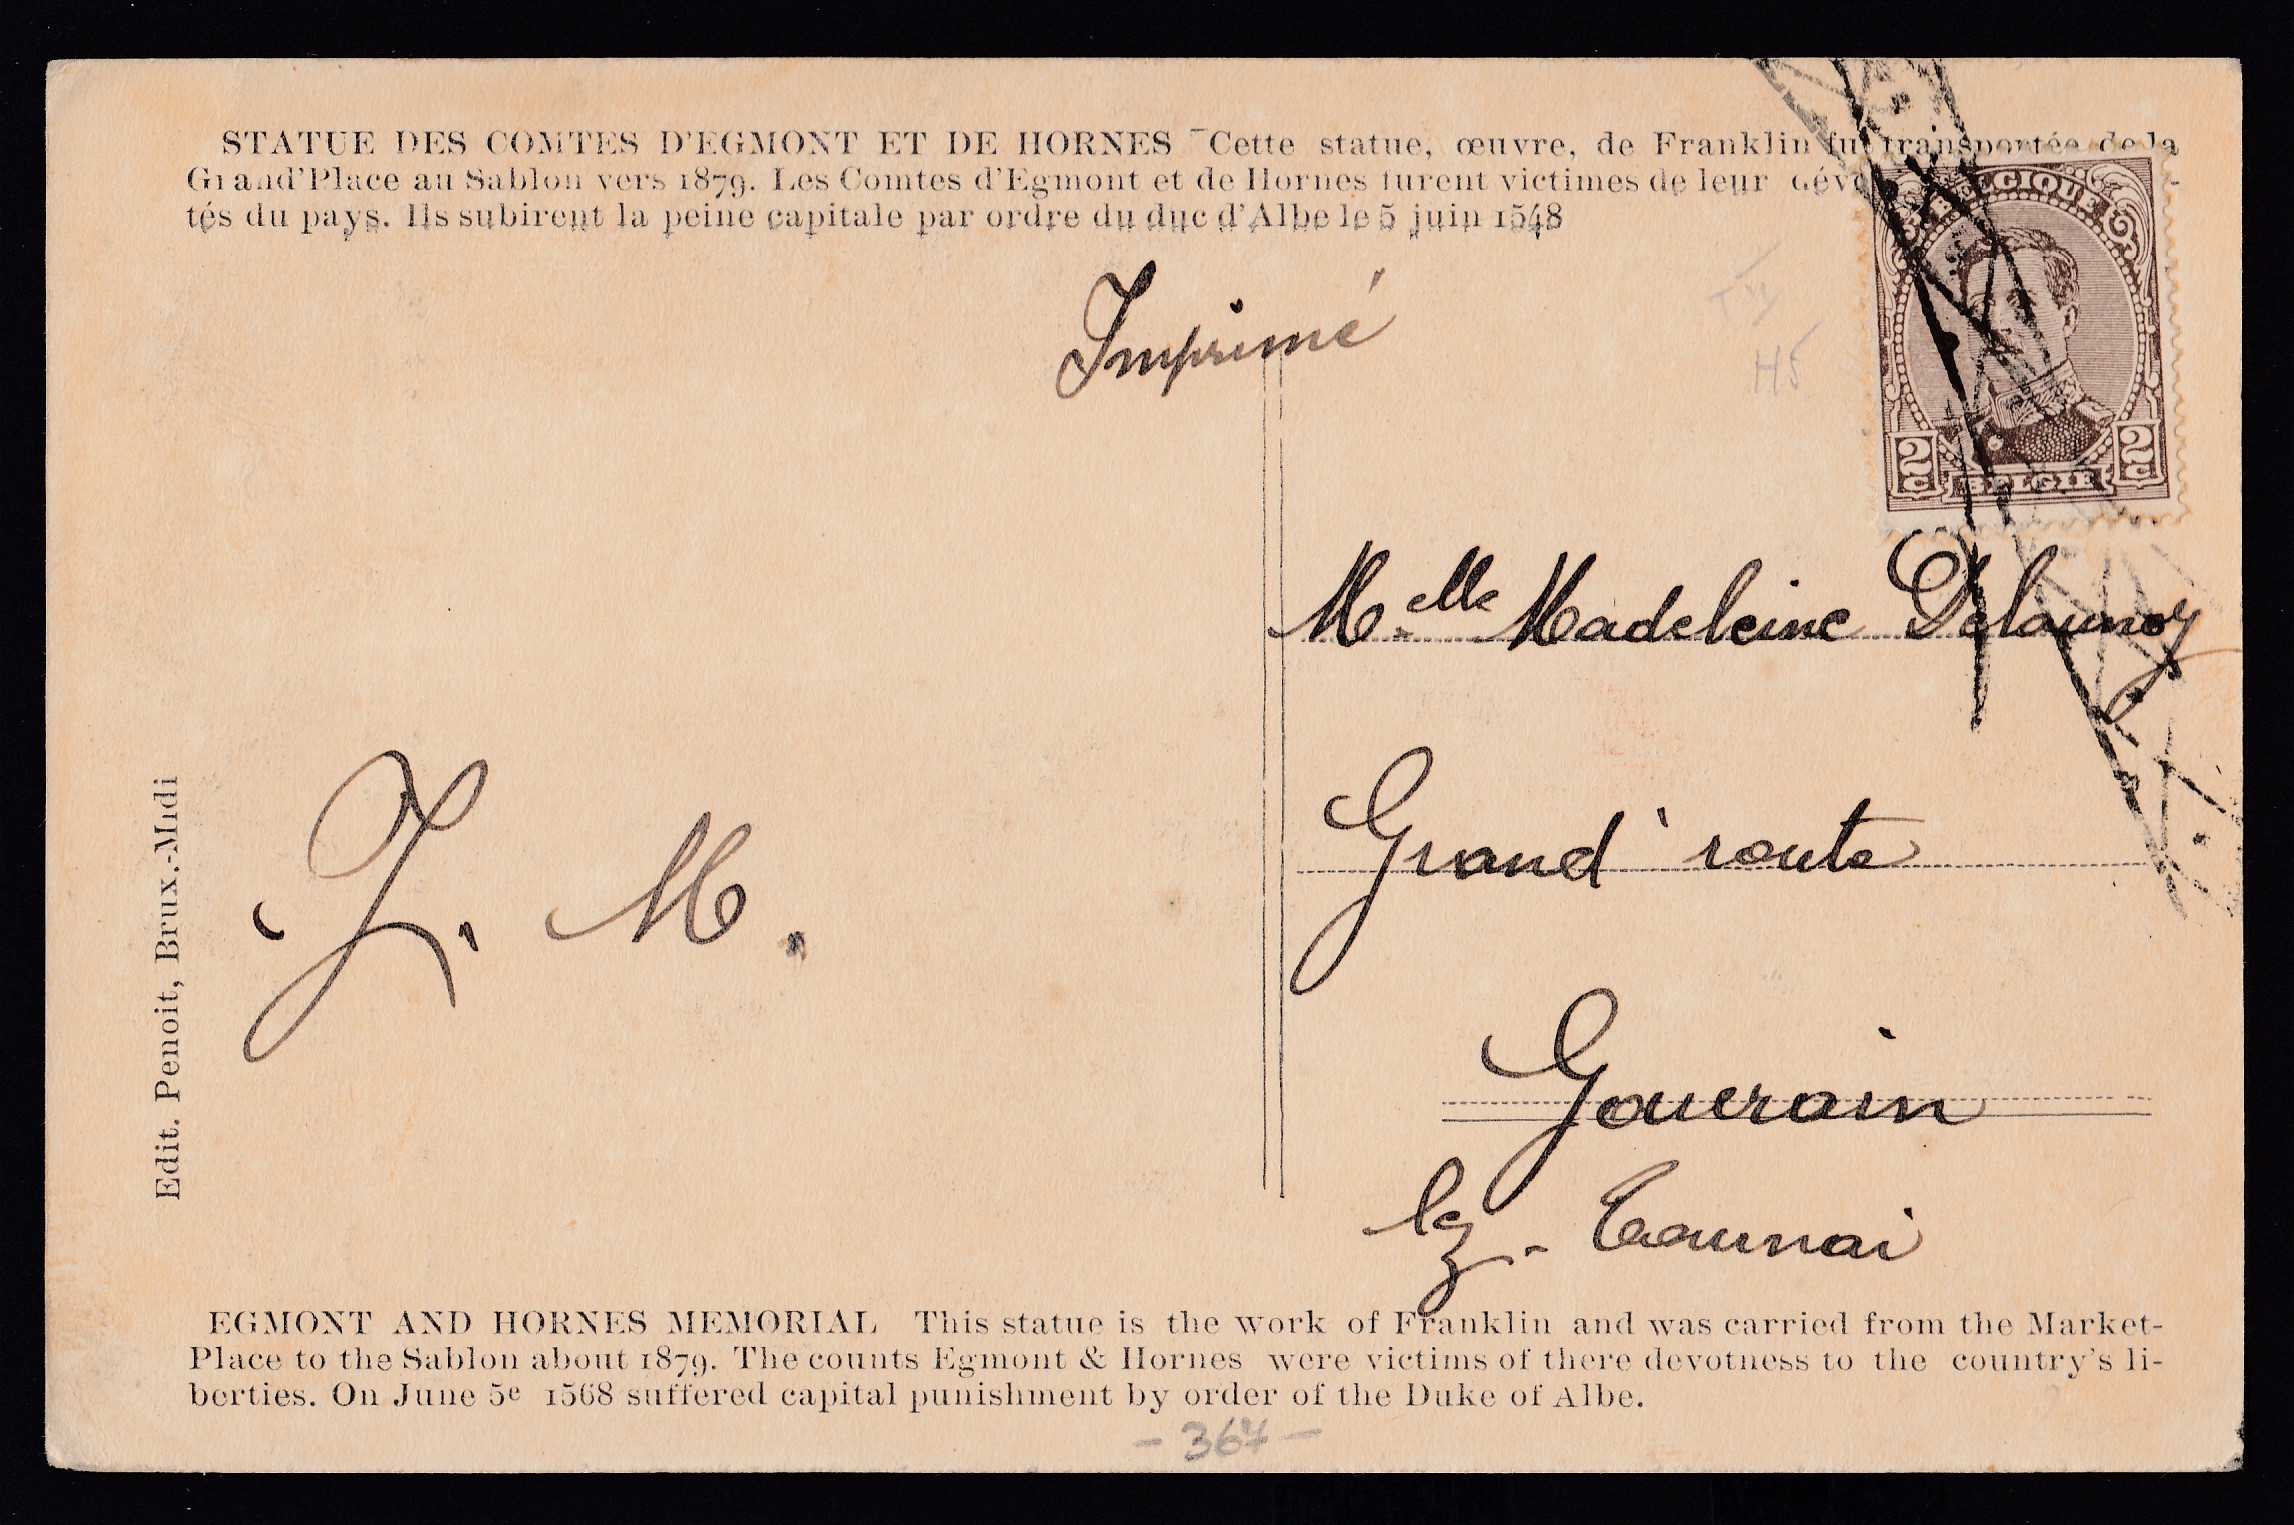 STATUE DES COMTES D'EGMONT ET DE HORNES – Cette statue, œuvre, de Franklin fut transportée de la
Grand'Place au Sablon vers 1879. Les Comtes d'Egmont et de Hornes furent victimes de leur
tés du pays. Ils subirent la peine capitale par ordre du duc d'Albe le 5 juin 1548
BELGIQUE
2c 2c
BELGIE
Imprimé
H5
Melle Madeleine Delaunoy
Grand' route
Gaurain
lez-Tournai
M.
Edit. Penoit, Brux.-Midi
EGMONT AND HORNES MEMORIAL This statue is the work of Franklin and was carried from the Market-
Place to the Sablon about 1879. The counts Egmont & Hornes were victims of there devotness to the country's li-
berties. On June 5e 1568 suffered capital punishment by order of the Duke of Albe.
- 367 -